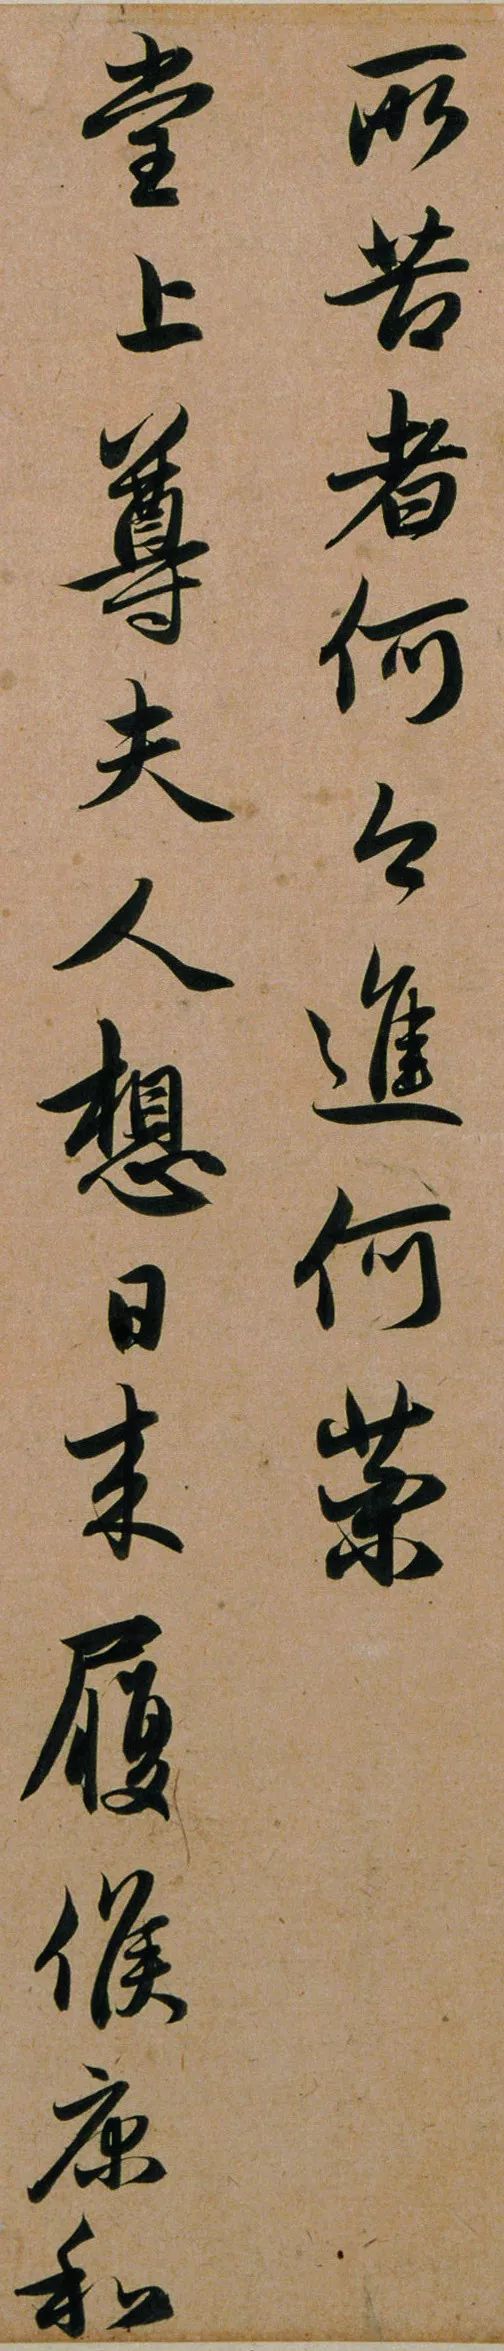 所苦者何今進何藥
堂上尊夫人想日来履候康和